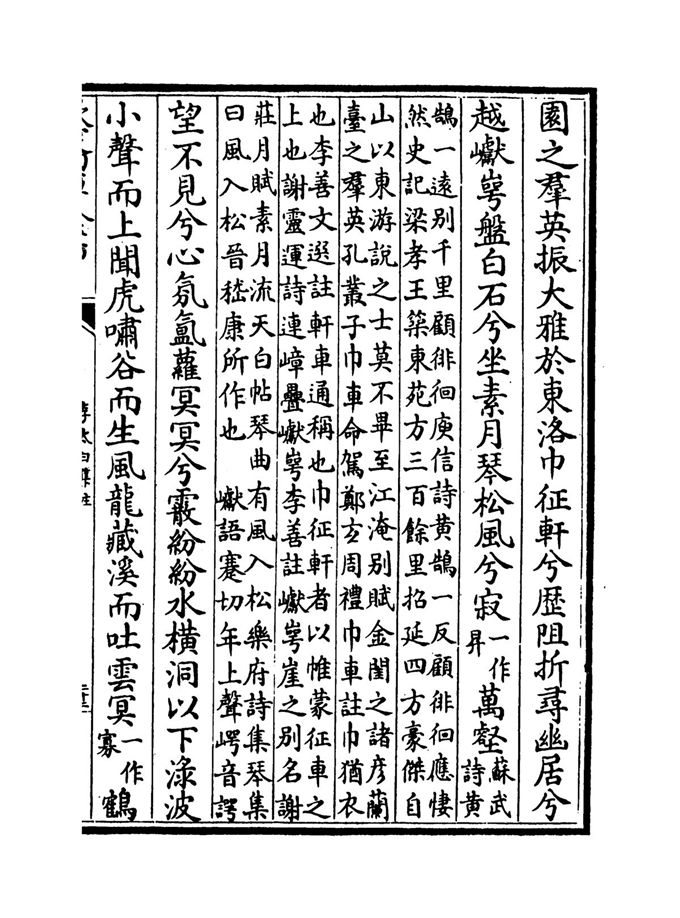 園之羣英振大雅於東洛巾征軒兮歷阻折尋幽居兮
越巘崿盤白石兮坐素月琴松風兮寂一作昇萬壑蘇武詩黄
鵠一遠别千里顧徘徊庾信詩黄鵠一反顧徘徊應悽
然史記梁孝王築東苑方三百餘里招延四方豪傑自
山以東游說之士莫不畢至江淹别賦金閨之諸彦蘭
臺之羣英孔叢子巾車命駕鄭玄周禮巾車註巾猶衣
也李善文選註軒車通稱也巾征軒者以帷蒙征車之
上也謝靈運詩連嶂疊巘崿李善註巘崿崖之别名謝
莊月賦素月流天白帖琴曲有風入松樂府詩集琴集
曰風入松晉嵇康所作也 巘語蹇切年上聲崿音諤
望不見兮心氛氲蘿冥冥兮霰紛紛水橫洞以下淥波
小聲而上聞虎嘯谷而生風龍藏溪而吐雲冥一作寡鶴
李太白集註